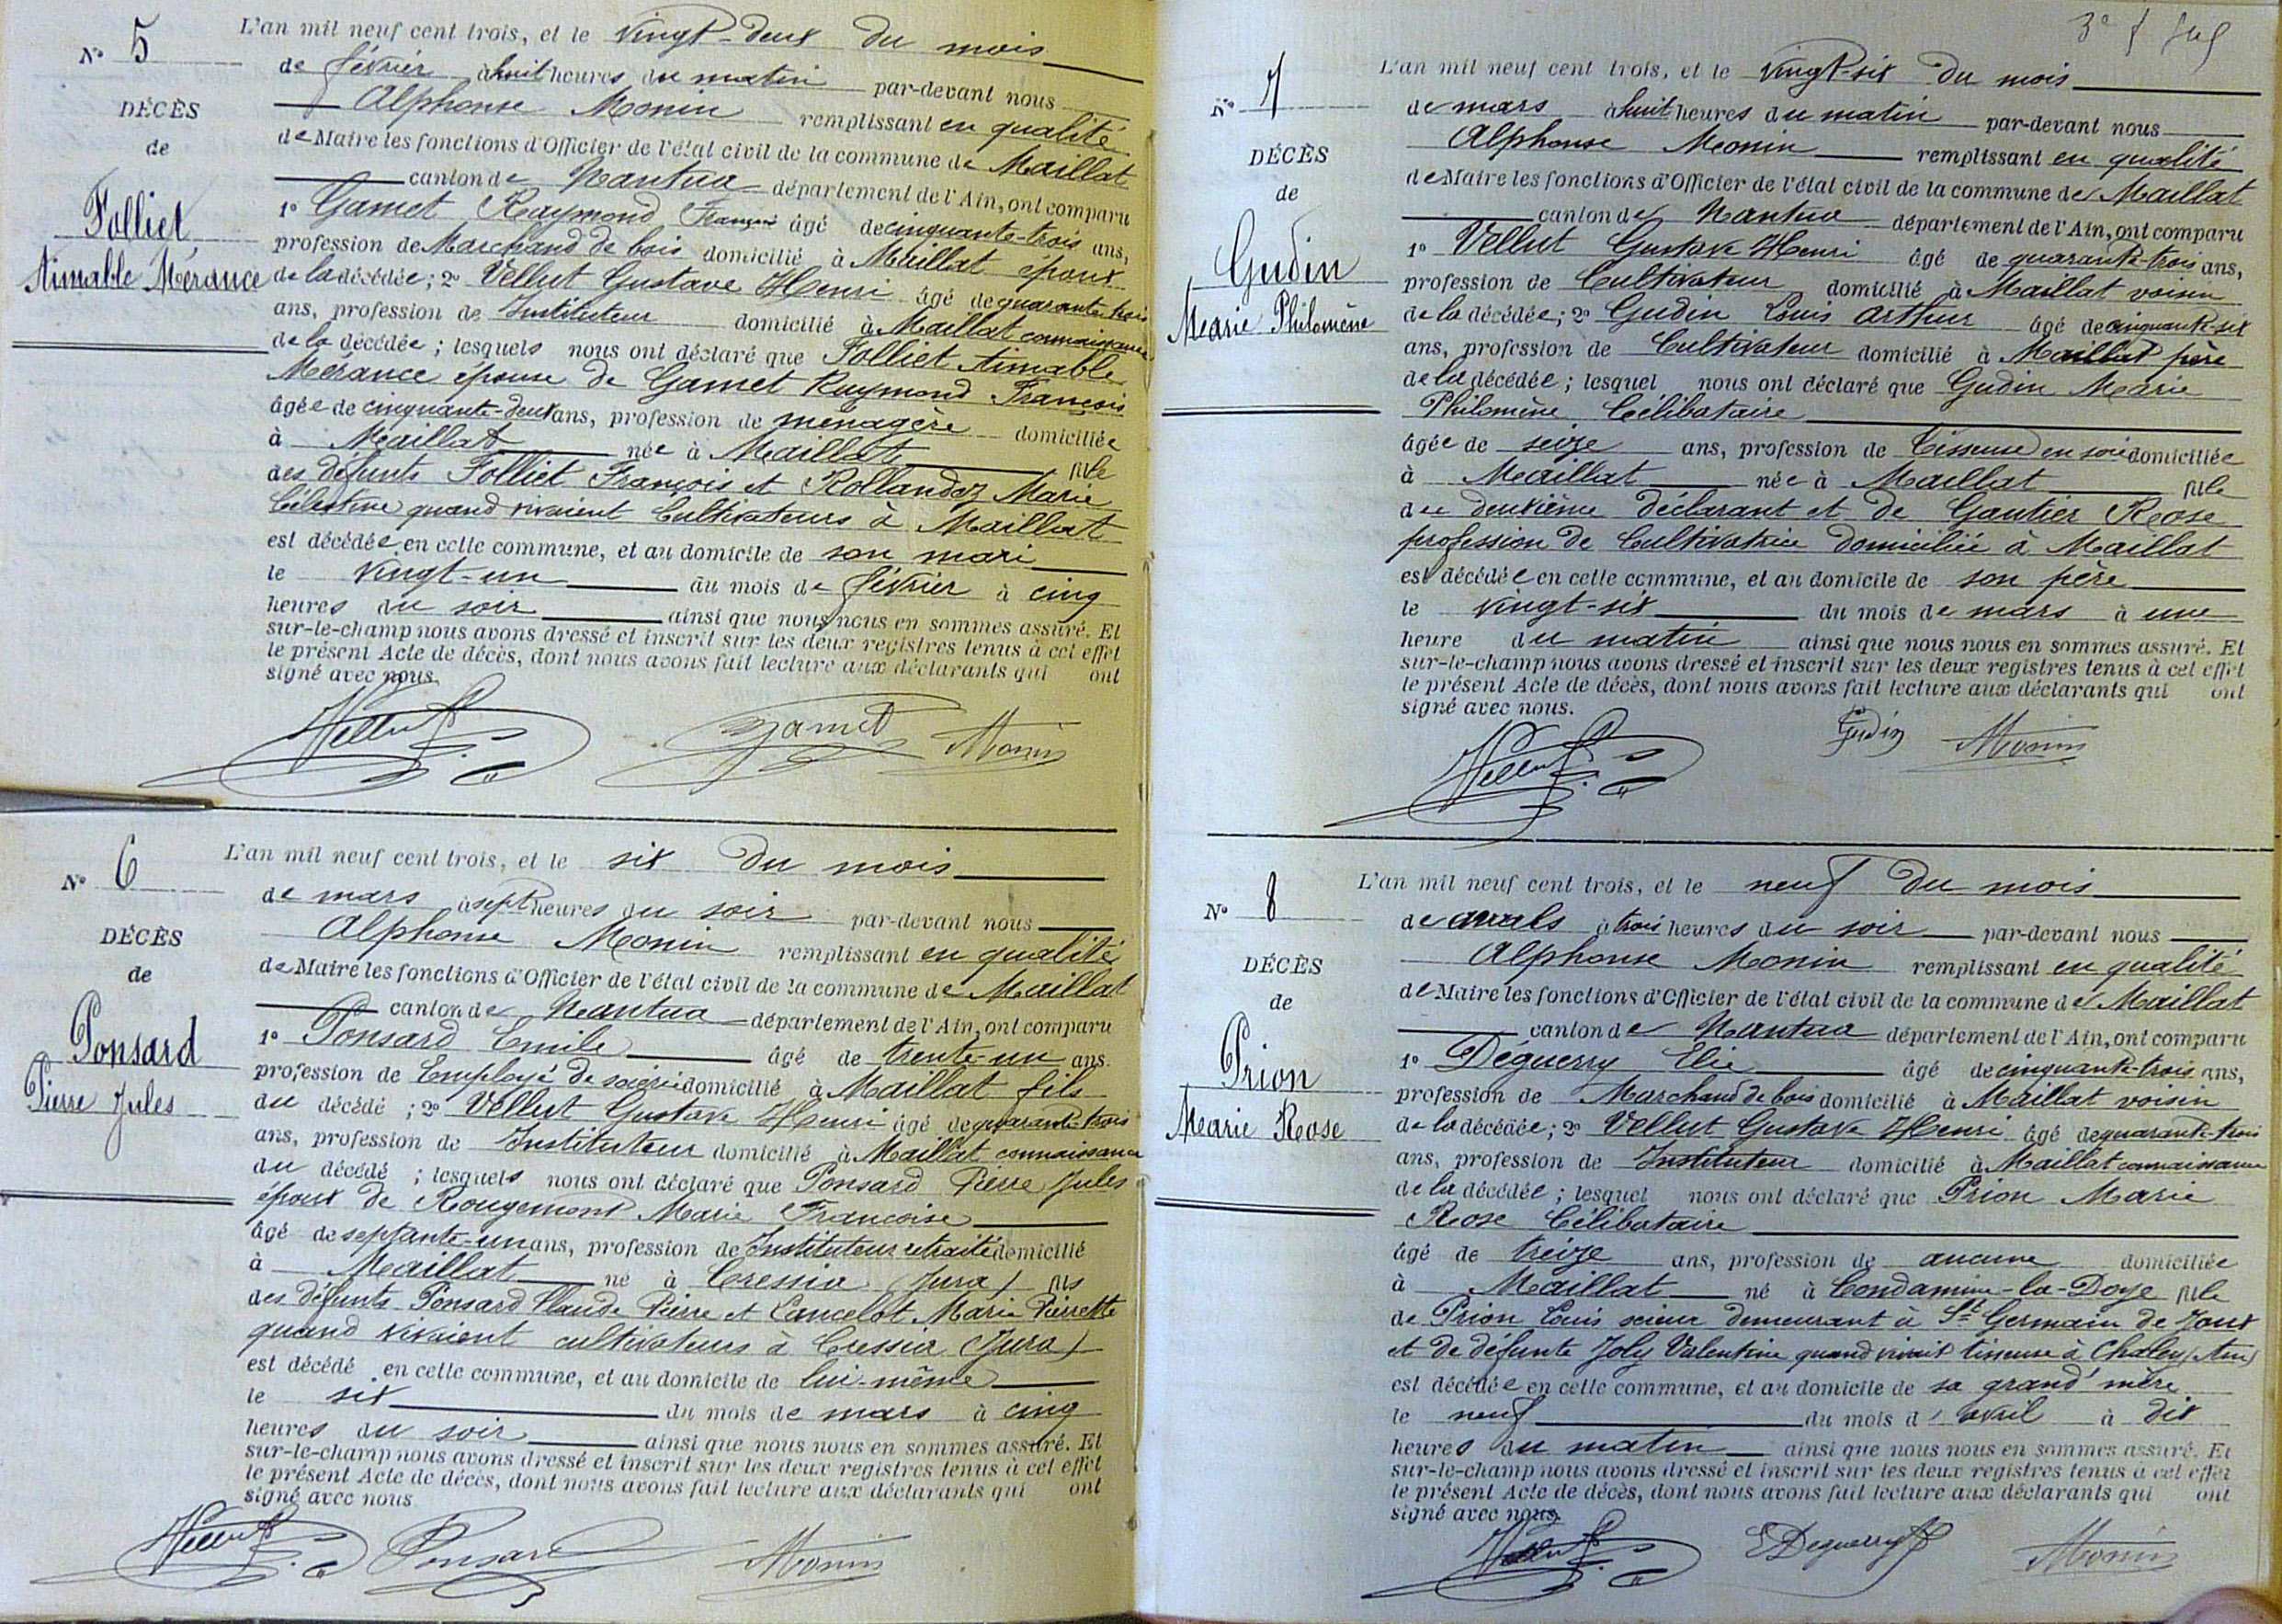 N° 5
DÉCÈS
de
Folliet
Aimable Mérance
L'an mil neuf cent trois, et le vingt-deux du mois
de février à huit heures du matin par-devant nous
Alphonse Monin remplissant en qualité
de Maire les fonctions d'Officier de l'état civil de la commune de Maillat
canton de Nantua département de l'Ain, ont comparu
1° Gamet Raymond François âgé de cinquante-trois ans,
profession de Marchand de bois domicilié à Maillat époux
de la décédée ; 2° Vellut Gustave Henri âgé de quarante trois
ans, profession de Instituteur domicilié à Maillat connaissance
de la décédée ; lesquels nous ont déclaré que Folliet Aimable
Mérance épouse de Gamet Raymond François
âgée de cinquante-deux ans, profession de ménagère domiciliée
à Maillat née à Maillat fille
des défunts Folliet François et Rollandez Marie
Célestine quand vivaient Cultivateurs à Maillat
est décédée en cette commune, et au domicile de son mari
le vingt-un du mois de février à cinq
heures du soir ainsi que nous nous en sommes assuré. Et
sur-le-champ nous avons dressé et inscrit sur les deux registres tenus à cet effet
le présent Acte de décès, dont nous avons fait lecture aux déclarants qui ont
signé avec nous.
Vellut Gamet Monin
N° 6
DÉCÈS
de
Ponsard
Pierre Jules
L'an mil neuf cent trois, et le six du mois
de mars à sept heures du soir par-devant nous
Alphonse Monin remplissant en qualité
de Maire les fonctions d'Officier de l'état civil de la commune de Maillat
canton de Nantua département de l'Ain, ont comparu
1° Ponsard Emile âgé de trente-un ans.
profession de Employé de soierie domicilié à Maillat fils
du décédé ; 2° Vellut Gustave Henri âgé de quarante-trois
ans, profession de Instituteur domicilié à Maillat connaissance
du décédé ; lesquels nous ont déclaré que Ponsard Pierre Jules
époux de Rougemont Marie Françoise
âgé de septante-un ans, profession de Instituteur retraité domicilié
à Maillat né à Cressia (Jura) fils
des défunts Ponsard Claude Pierre et Lancelot Marie Pierrette
quand vivaient cultivateurs à Cressia (Jura)
est décédé en cette commune, et au domicile de lui-même
le six du mois de mars à cinq
heures du soir ainsi que nous nous en sommes assuré. Et
sur-le-champ nous avons dressé et inscrit sur les deux registres tenus à cet effet
le présent Acte de décès, dont nous avons fait lecture aux déclarants qui ont
signé avec nous
Vellut Ponsard Monin
3e f
N° 7
DÉCÈS
de
Gudin
Marie Philomène
L'an mil neuf cent trois, et le vingt-six du mois
de mars à huit heures du matin par-devant nous
Alphonse Monin remplissant en qualité
de Maire les fonctions d'Officier de l'état civil de la commune de Maillat
canton de Nantua département de l'Ain, ont comparu
1° Vellut Gustave Henri âgé de quarante-trois ans,
profession de Cultivateur domicilié à Maillat voisin
de la décédée ; 2° Gudin Louis Arthur âgé de cinquante-six
ans, profession de Cultivateur domicilié à Maillat père
de la décédée ; lesquel nous ont déclaré que Gudin Marie
Philomène Célibataire
âgée de seize ans, profession de Tisseuse en soie domiciliée
à Maillat née à Maillat fille
du deuxième déclarant et de Gautier Rose
profession de Cultivatrice domiciliée à Maillat
est décédée en cette commune, et au domicile de son père
le vingt-six du mois de mars à une
heure du matin ainsi que nous nous en sommes assuré. Et
sur-le-champ nous avons dressé et inscrit sur les deux registres tenus à cet effet
le présent Acte de décès, dont nous avons fait lecture aux déclarants qui ont
signé avec nous.
Vellut Gudin Monin
N° 8
DÉCÈS
de
Prion
Marie Rose
L'an mil neuf cent trois, et le neuf du mois
de à trois heures du soir par-devant nous
Alphonse Monin remplissant en qualité
de Maire les fonctions d'Officier de l'état civil de la commune de Maillat
canton de Nantua département de l'Ain, ont comparu
1° Déguerry Elie âgé de cinquante-trois ans,
profession de Marchand de bois domicilié à Maillat voisin
de la décédée ; 2° Vellut Gustave Henri âgé de quarante-trois
ans, profession de Instituteur domicilié à Maillat connaissance
de la décédée ; lesquel nous ont déclaré que Prion Marie
Rose Célibataire
âgé de treize ans, profession de aucune domiciliée
à Maillat né à Condamine-la-Doye fille
de Prion Louis scieur demeurant à St Germain de Joux
et de défunte Joly Valentine quand vivait tisseuse à Chaley (Ain)
est décédée en cette commune, et au domicile de sa grand'mère
le neuf du mois d'avril à dix
heures du matin ainsi que nous nous en sommes assuré. Et
sur-le-champ nous avons dressé et inscrit sur les deux registres tenus à cet effet
le présent Acte de décès, dont nous avons fait lecture aux déclarants qui ont
signé avec nous.
Vellut E Deguerry Monin